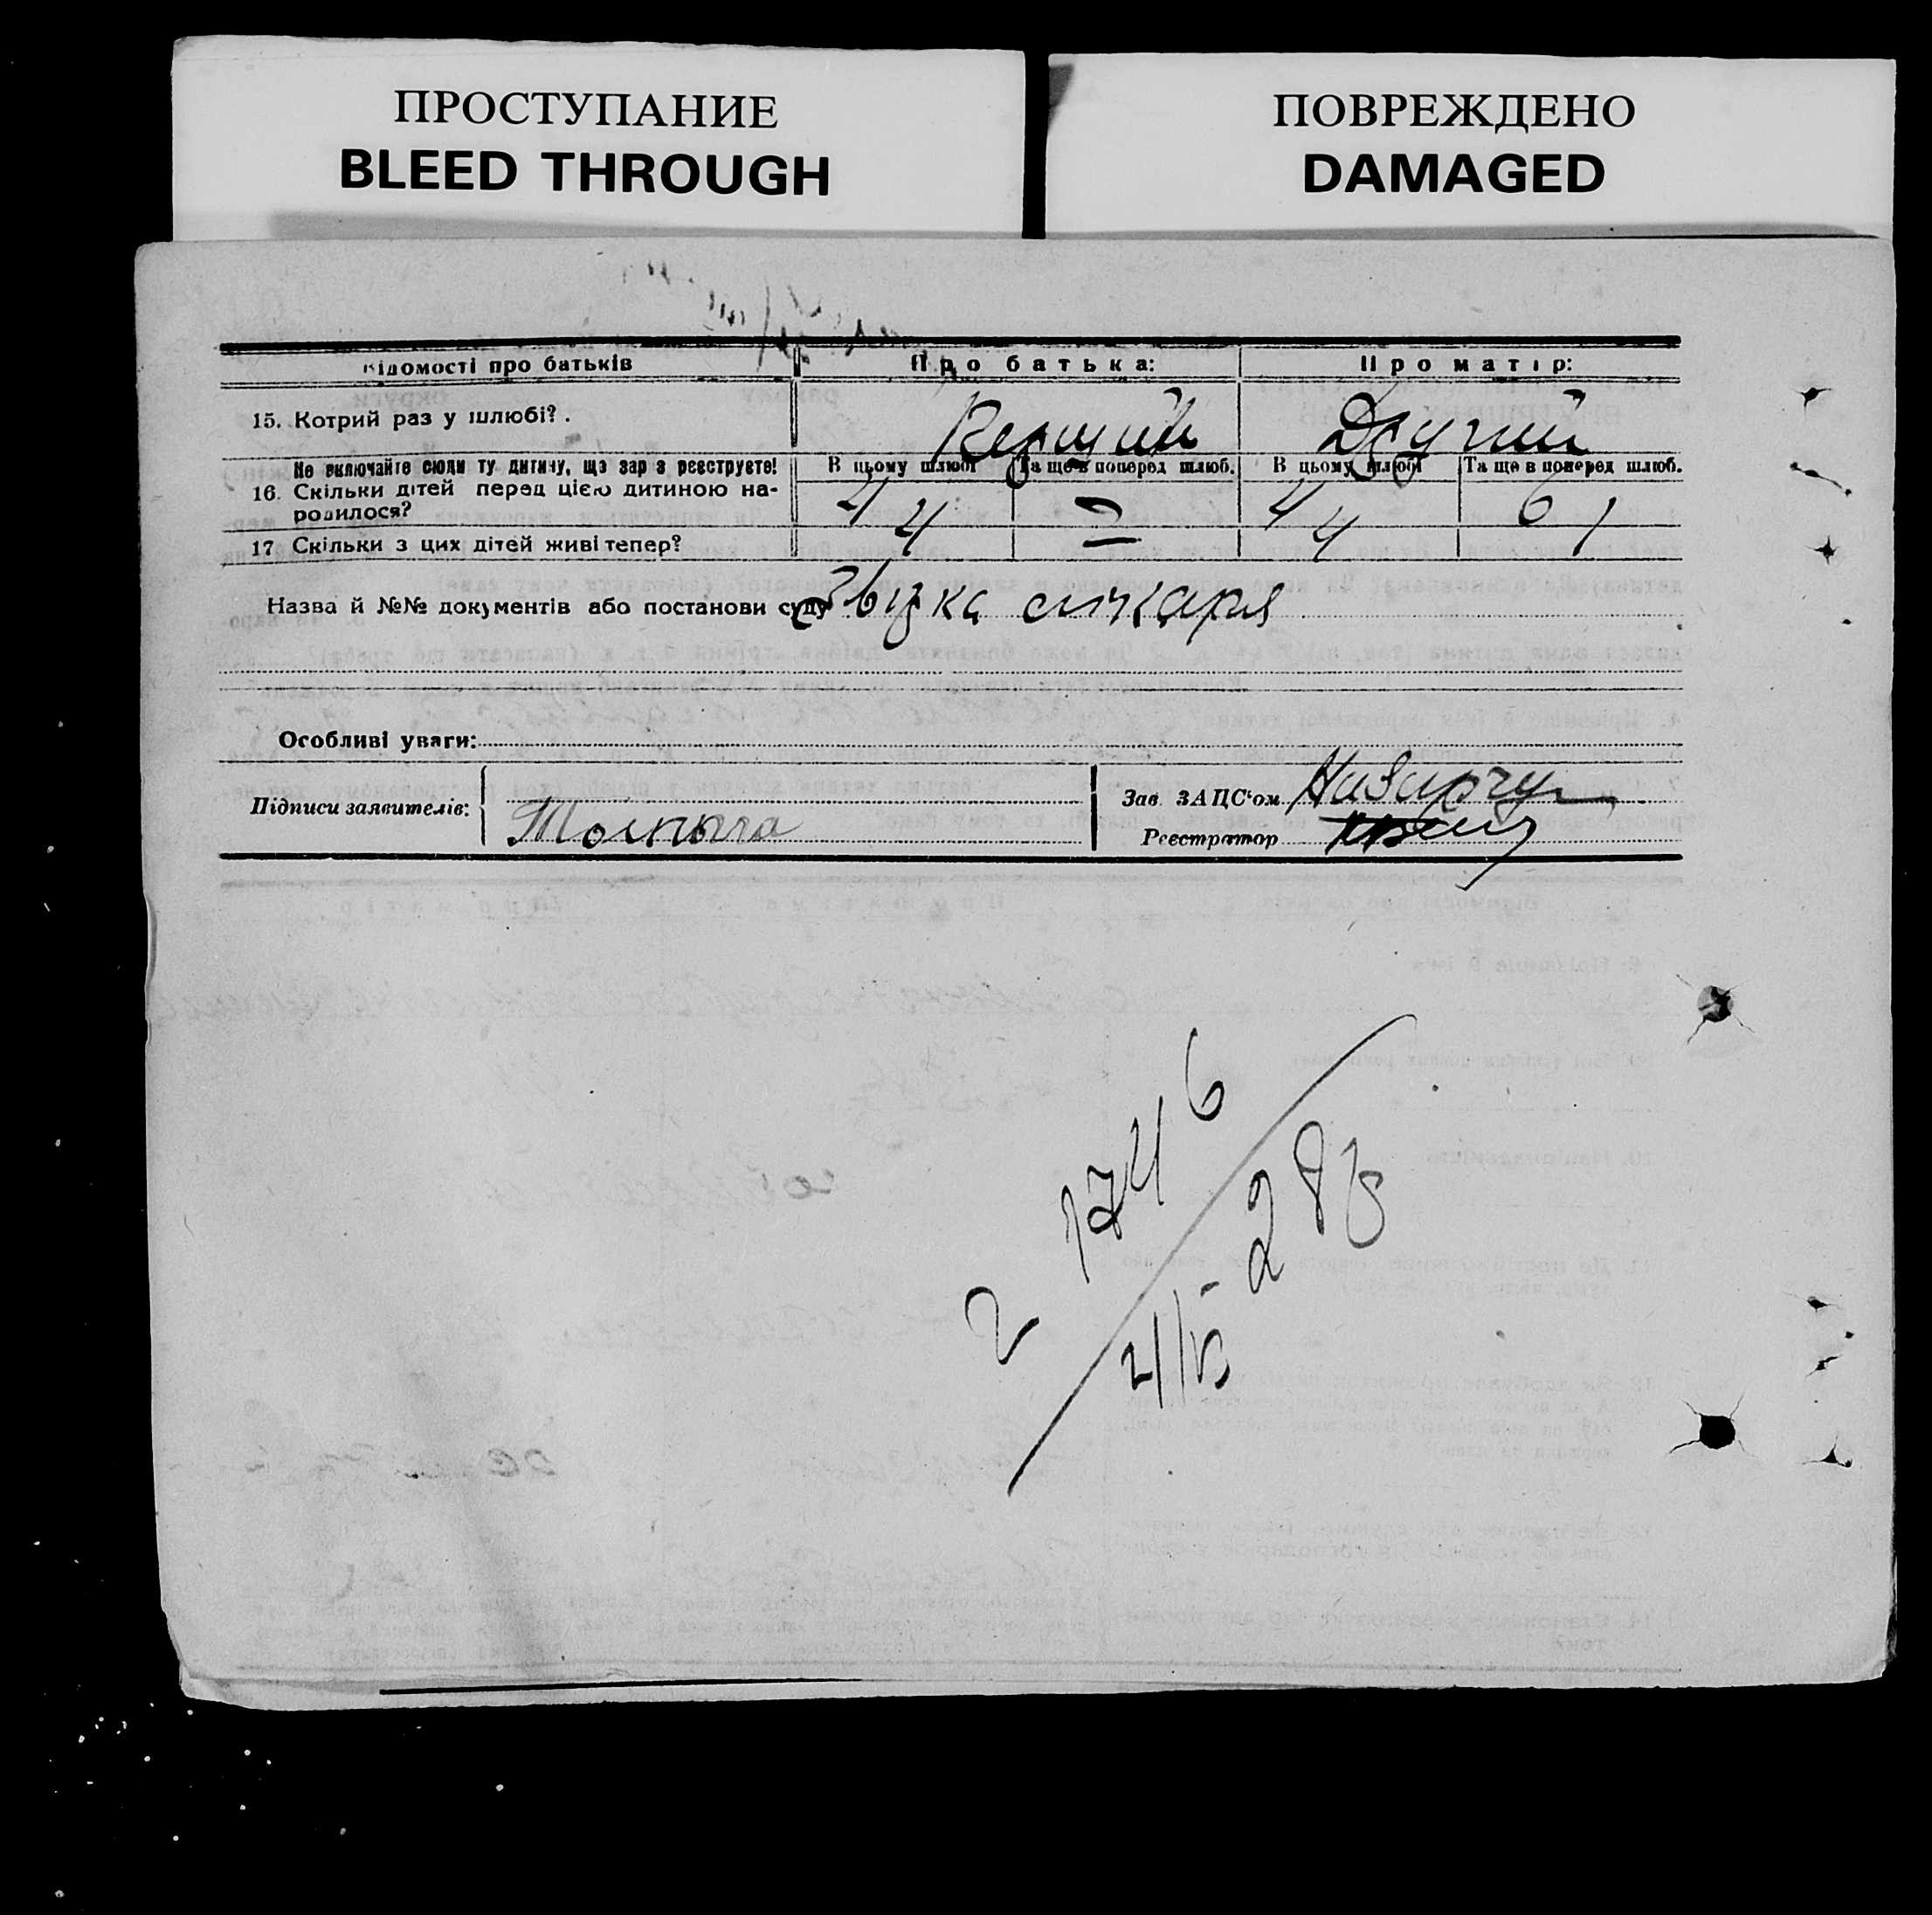 ПРОСТУПАНИЕ
BLEED THROUGH
ПОВРЕЖДЕНО
DAMAGED
відомості про батьків Про батька: Про матір:
15. Котрий раз у шлюбі? . Перший Другий
Не включайте сюди ту дитину, що зараз реєструєте! В цьому шлюбі Та ще в поперед шлюб. В цьому шлюбі Та ще в поперед шлюб.
16. Скільки дітей перед цією дитиною на-
родилося? 4 — 4 6
17 Скільки з цих дітей живі тепер? 4 — 4 1
Назва й №№ документів або постанови суду
Особливі уваги:
Підписи заявителів:
Зав. ЗАЦС'ом Назарчук
Реєстратор
2 1746
4/V - 28